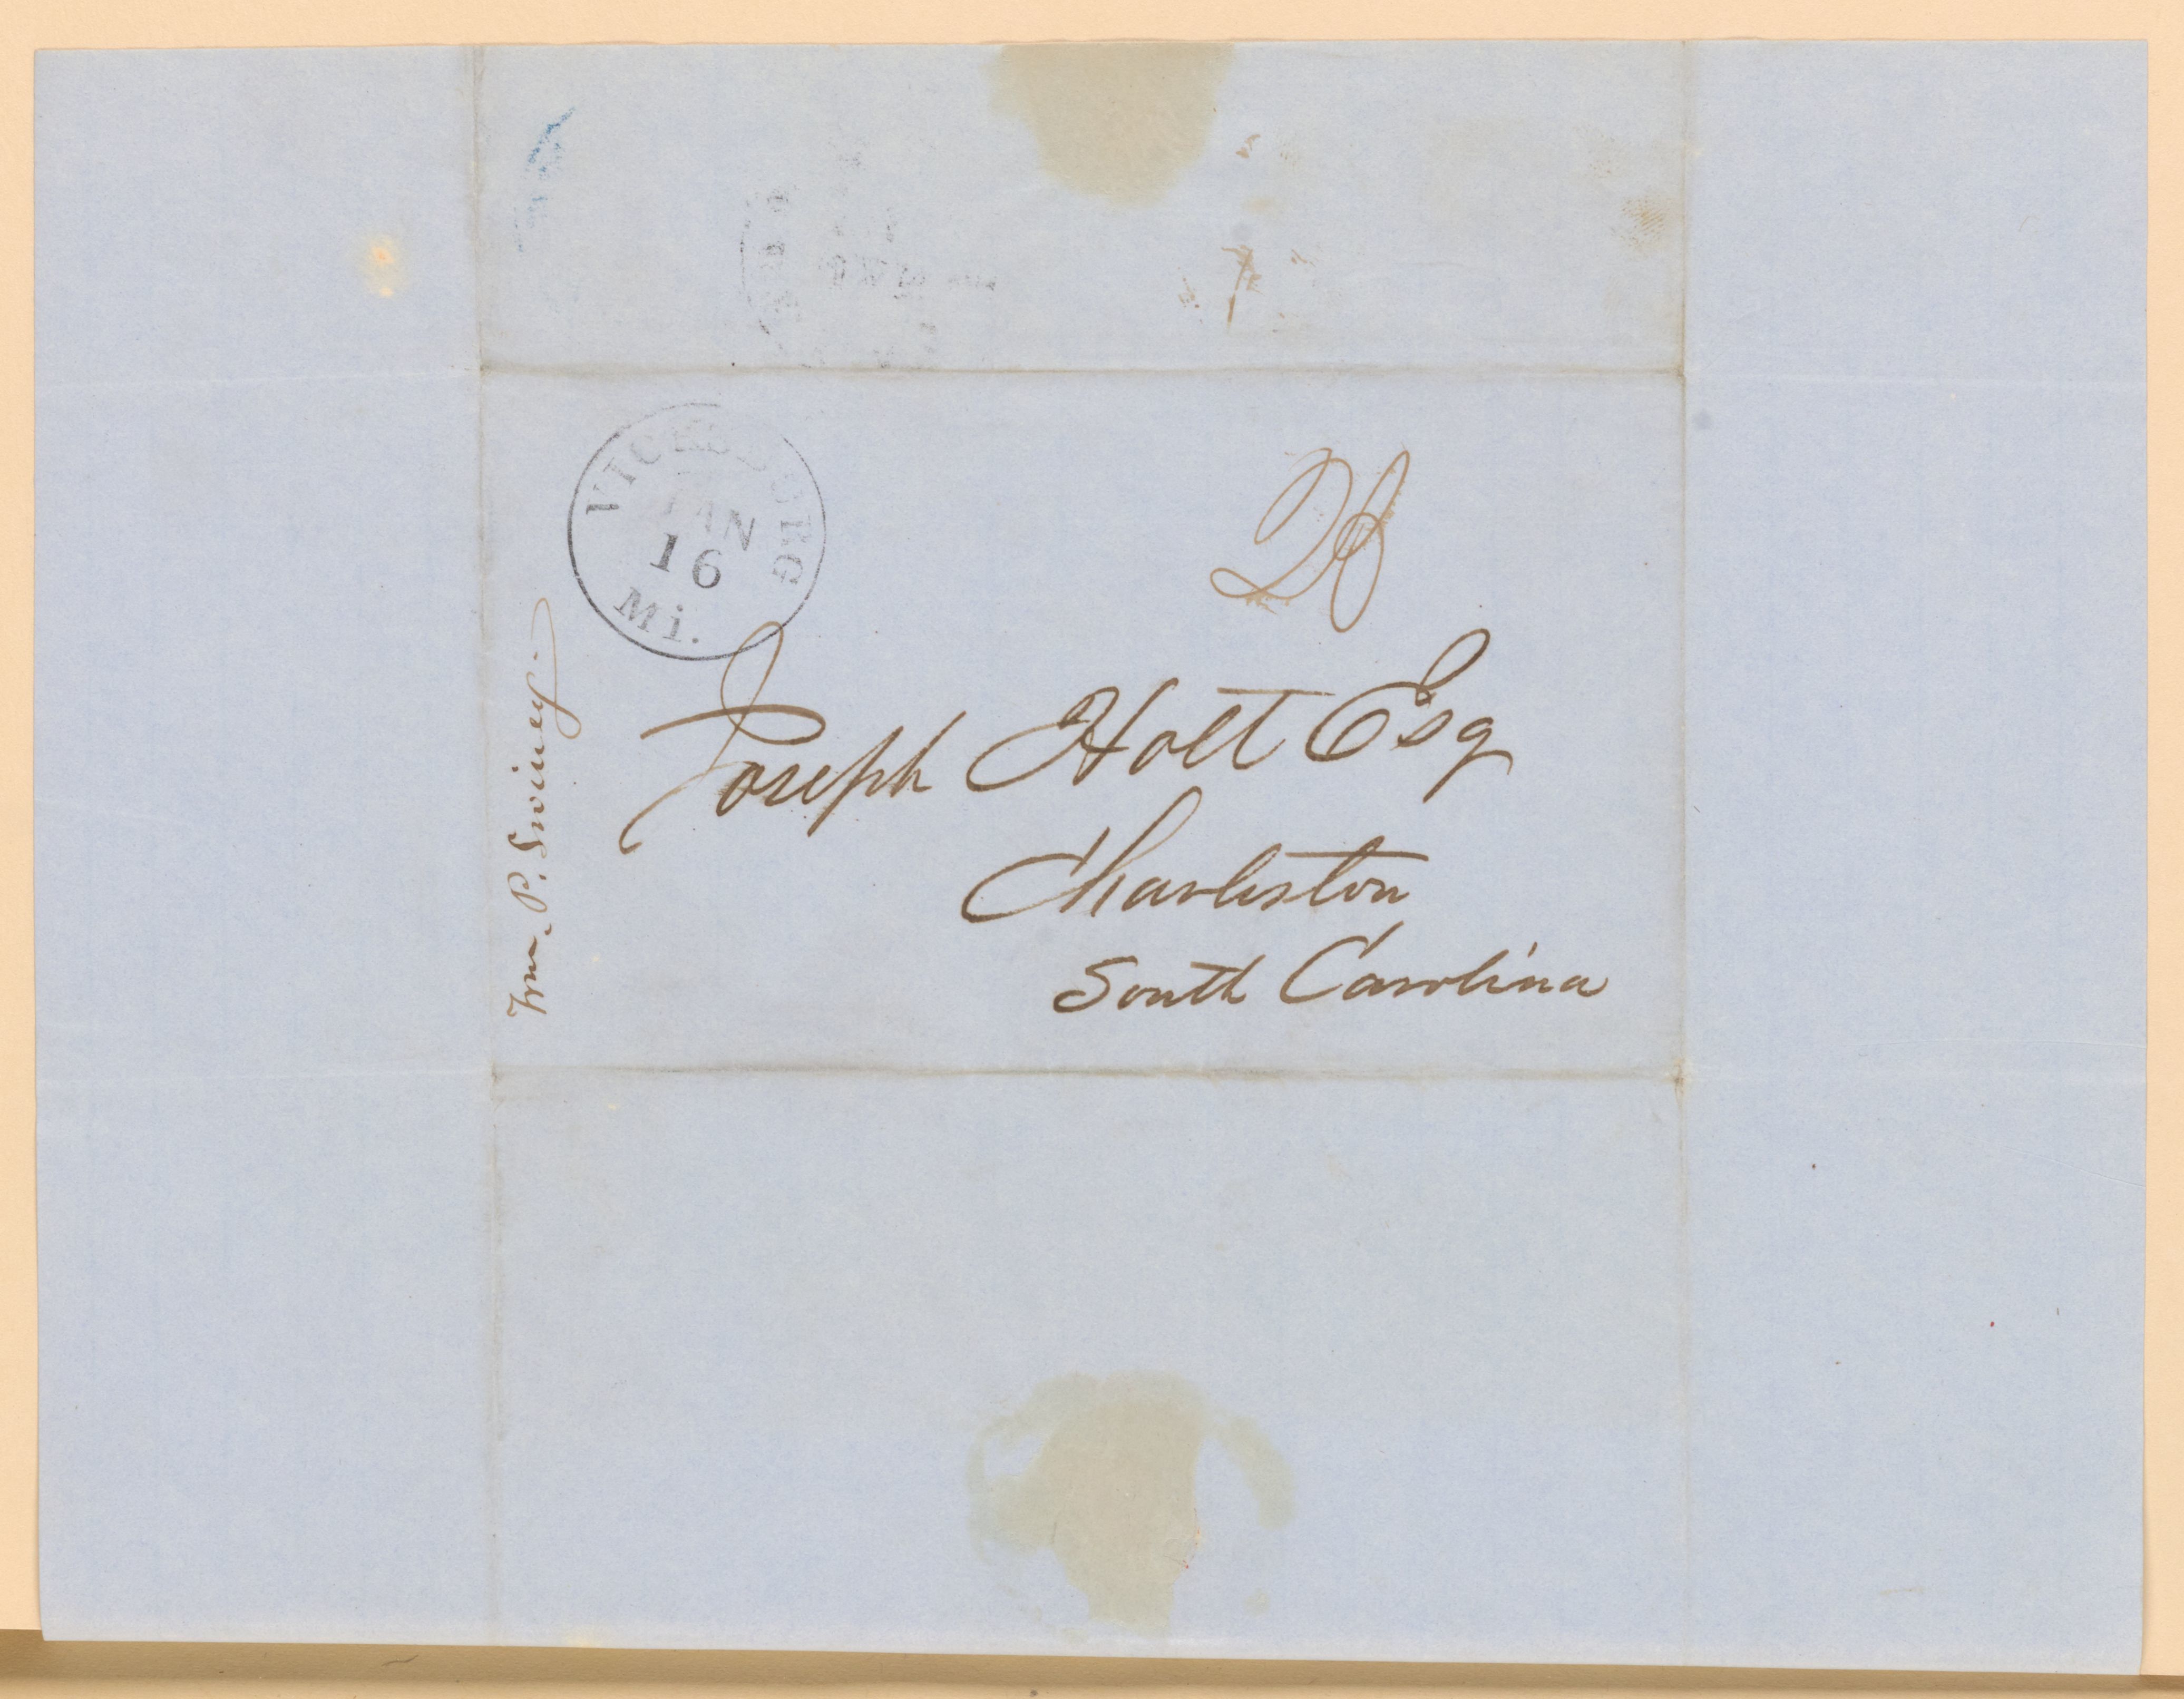 VICKSBURG
JAN
16
Mi.
Joseph Holt Esq
Charleston
South Carolina
Wm. P. Swiney.